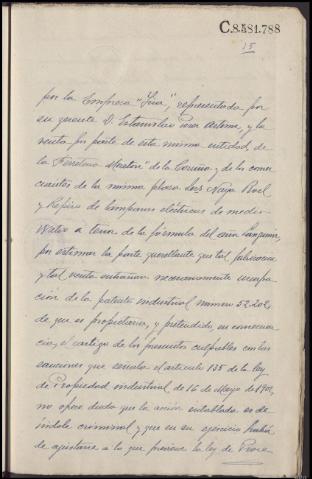 C.8.581.788
15
por la Empresa "Lua", representada por
su gerente D. Estanislao Artime, y la
venta por parte de esta misma entidad, de
la "Ferretera Mareton" de la Coruña y de los comer
ciantes de la misma plaza Sres Naya Roel
y Rofriu de lamparas eléctricas de medio
Watio a tenor de la fórmula del
por estimar la parte querellante que tal fabricacion
y tal venta entrañan necesariamente usurpa
cion de la patente industrial número 52.202,
de que es propietario, y pretendida en consecuen
cia, el castigo de los presuntos culpables con las
sanciones que señala el artículo 135 de la ley
de Propiedad industrial de 16 de Mayo de 1902,
no ofrece duda que la acción entablada es de
índole criminal y que en su ejercicio habrá
de ajustarse a lo que previene la ley de Proce